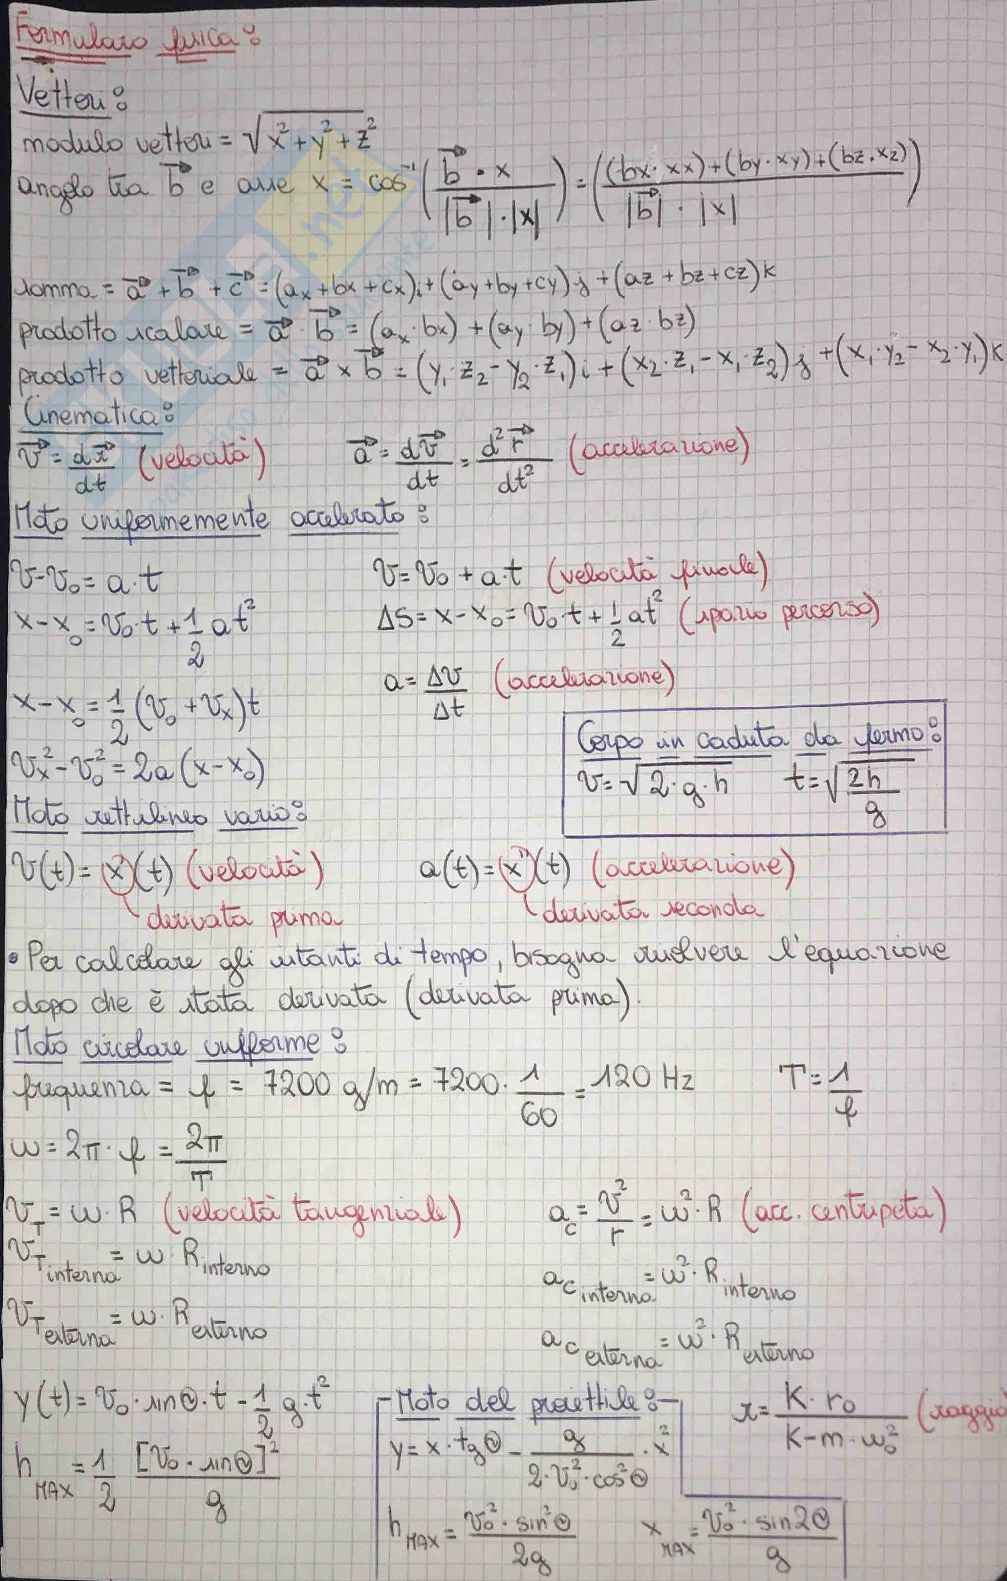 Formulario fisica:
Vettori:
modulo vettori = √x²+y²+z²
angolo tra b⃗ e asse x = cos⁻¹ (b⃗ · x / |b⃗|·|x|) = ((bx·xx)+(by·xy)+(bz·xz) / |b⃗|·|x|)
somma = a⃗ + b⃗ + c⃗ = (ax+bx+cx)i+(ay+by+cy)j+(az+bz+cz)k
prodotto scalare = a⃗ · b⃗ = (ax·bx)+(ay·by)+(az·bz)
prodotto vettoriale = a⃗ × b⃗ = (y₁·z₂-y₂·z₁)i+(x₂·z₁-x₁·z₂)j+(x₁·y₂-x₂·y₁)k
Cinematica:
v⃗ = dr⃗/dt (velocità) a⃗ = dv⃗/dt = d²r⃗/dt² (accelerazione)
Moto uniformemente accelerato:
v-v₀ = a·t v = v₀ + a·t (velocità finale)
x-x₀ = v₀·t + 1/2 at² ΔS = x-x₀ = v₀·t + 1/2 at² (spazio percorso)
a = Δv/Δt (accelerazione)
x-x₀ = 1/2 (v₀+vx)t
vx²-v₀² = 2a(x-x₀)
Corpo in caduta da fermo:
v = √2·g·h t = √2h/g
Moto rettilineo vario:
v(t) = x'(t) (velocità) a(t) = x''(t) (accelerazione)
derivata prima derivata seconda
• Per calcolare gli istanti di tempo, bisogna risolvere l'equazione
dopo che è stata derivata (derivata prima).
Moto circolare uniforme:
frequenza = f = 7200 g/m = 7200 · 1/60 = 120 Hz T = 1/f
ω = 2π·f = 2π/T
v_T = ω·R (velocità tangenziale) a_c = v²/r = ω²·R (acc. centripeta)
v_T interna = ω·R interno a_c interna = ω²·R interno
v_T esterna = ω·R esterno a_c esterna = ω²·R esterno
y(t) = v₀·sinΘ·t - 1/2 g·t²
h MAX = 1/2 [v₀·sinΘ]²/g
Moto del proiettile:
y = x·tgΘ - g/2·v₀²·cos²Θ · x²
h MAX = v₀²·sin²Θ/2g x MAX = v₀²·sin2Θ/g
r = K·r₀/K-m·ω₀² (raggio